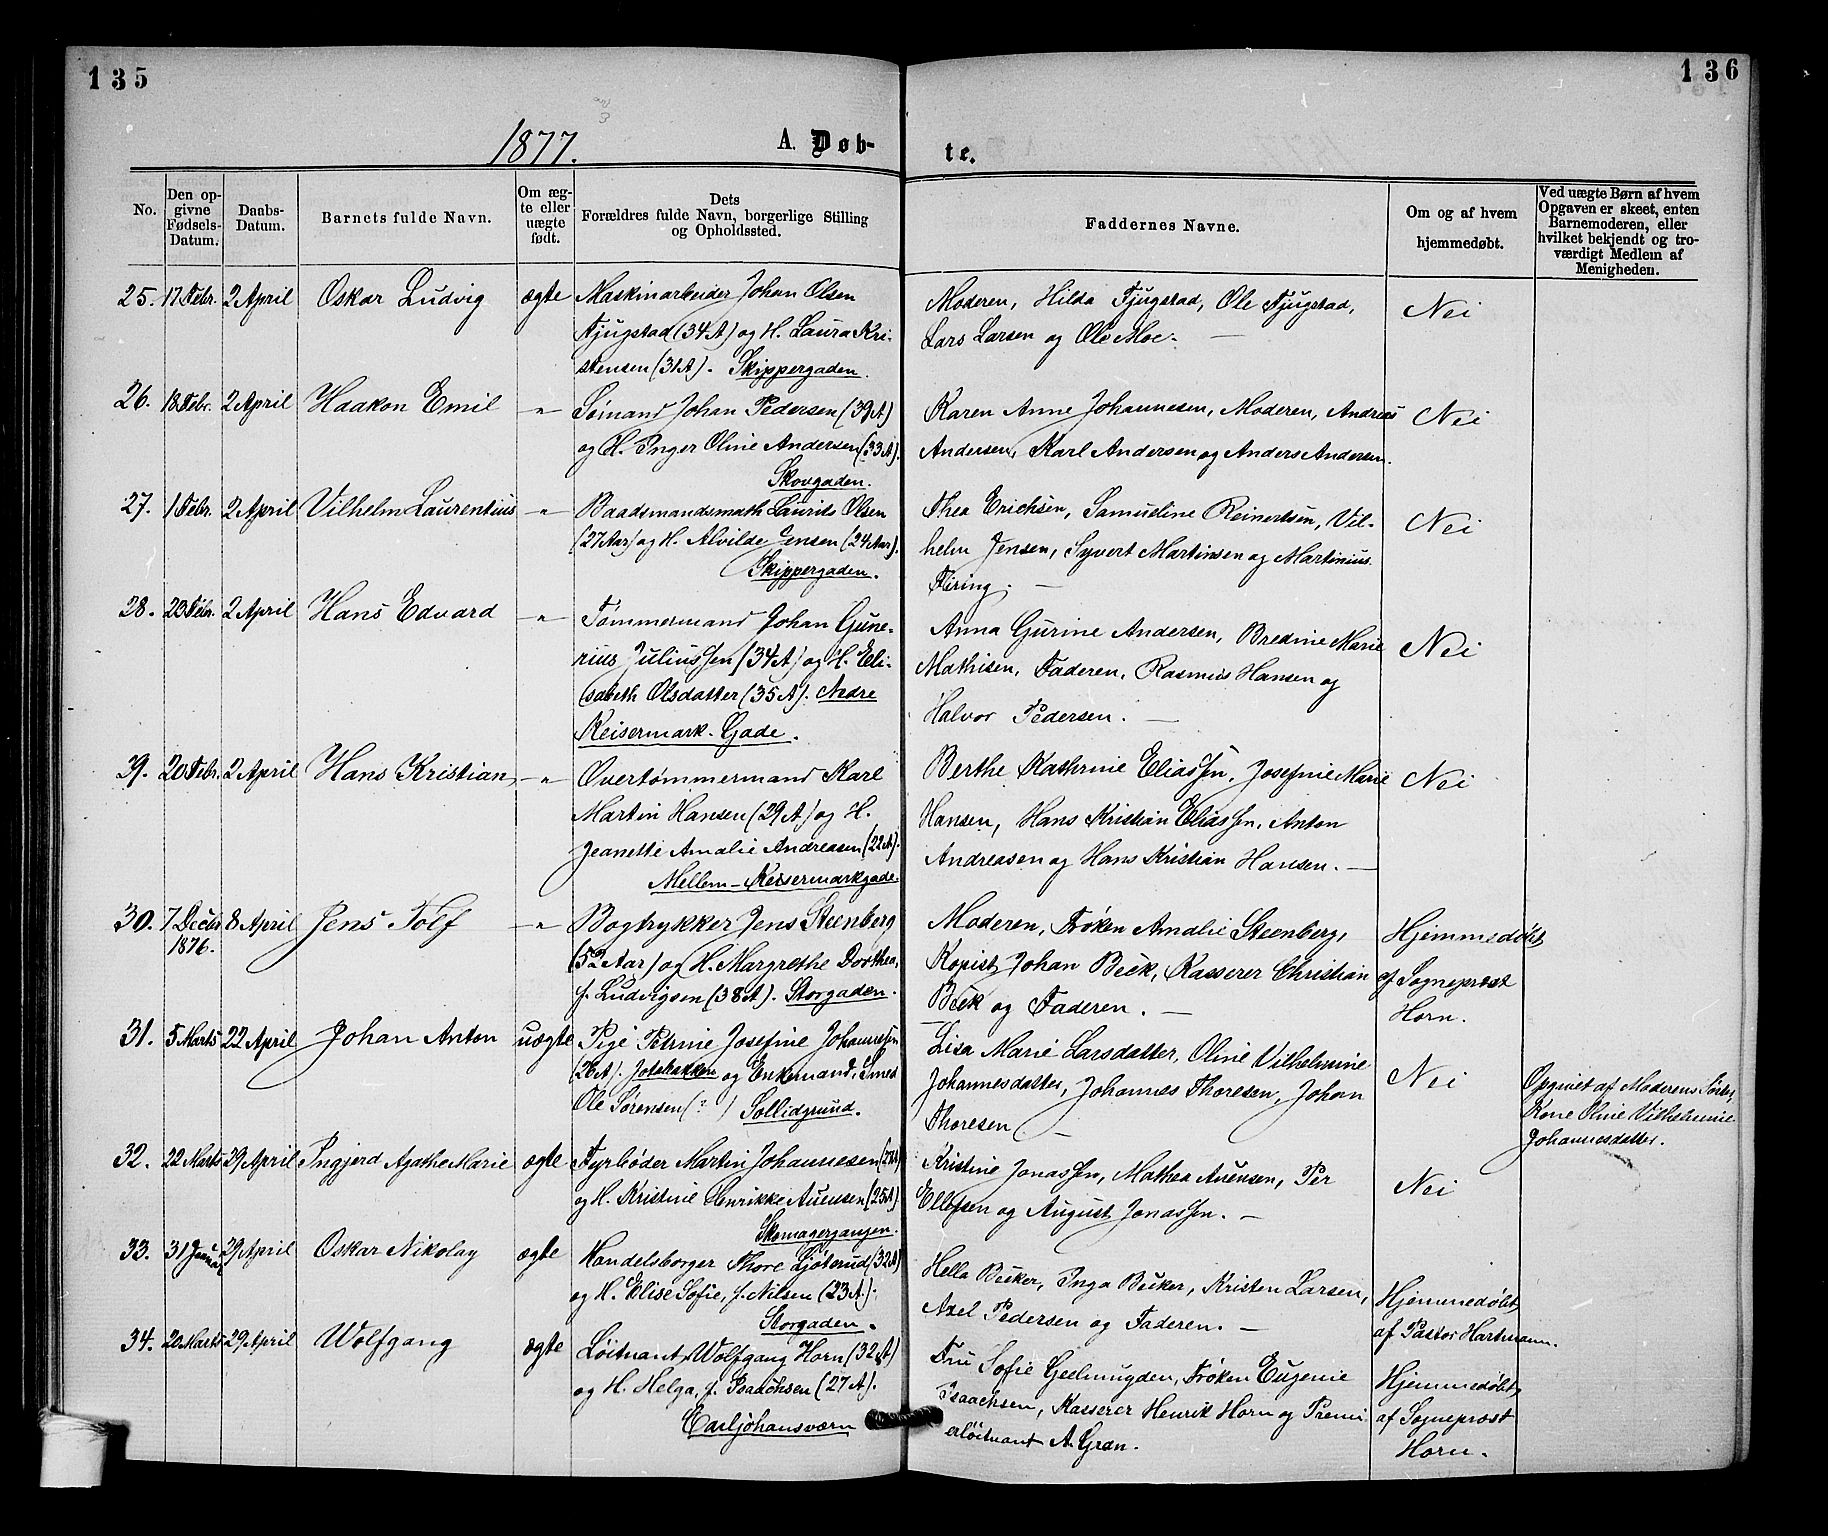 135
136
1877.
A. Døb-
te.
No.
Den op-
givne
Fødsels-
Datum.
Daabs-
Datum.
Barnets fulde Navn.
Om æg-
te eller
uægte
født.
Dets
Forældres fulde Navn, borgerlige Stilling
og Opholdssted.
Faddernes Navne.
Om og af hvem
hjemmedøbt.
Ved uægte Børn af hvem
Opgaven er skeet, enten
Barnemoderen, eller
hvilket bekjendt og tro-
værdigt Medlem af
Menigheden.
25. 17 Febr. 2 April Oskar Ludvig ægte Maskinarbeider Johan Olsen
Fjugstad (34 A) og H. Laura Kri-
stensen (31 A). Skippergaden.
Moderen, Hilda Fjugstad, Ole Fjugstad,
Lars Larsen og Ole Moe. —
Nei
26. 18 Febr. 2 April Haakon Emil -"- Sømand Johan Pedersen (39 A)
og H. Inger Oline Andersen (33 A).
Skovgaden.
Karen Anne Johannesen, Moderen, Andreas
Andersen, Karl Andersen og Anders Andersen.
Nei
27. 1 Febr. 2 April Vilhelm Laurentius -"- Baadsmandsmath Laurits Olsen
(27 Aar) og H. Alvilde Jensen (24 Aar).
Skippergaden.
Thea Erichsen, Samueline Reinertsen, Vil-
helm Jensen, Syvert Martinsen og Martinius
Firing. —
Nei
28. 23 Febr. 2 April Hans Edvard -"- Tømmermand Johan Gune-
rius Juliussen (34 A) og H. Eli-
sabeth Olsdatter (35 A). Nedre
Keisermark-Gade.
Anna Gurine Andersen, Bredine Marie
Mathisen, Faderen, Rasmus Hansen og
Halvor Pedersen. —
Nei
29. 20 Febr. 2 April Hans Kristian -"- Overtømmermand Karl
Martin Hansen (29 A) og H.
Jeanette Amalie Andreasen (22 A).
Mellem-Keisermarkgade.
Berthe Kathrine Eliassen, Josefine Marie
Hansen, Hans Kristian Eliassen, Anton
Andreasen og Hans Kristian Hansen. —
Nei
30. 7 Decbr 8 April Jens Tolf -"- Bogtrykker Jens Steenberg
1876.
(52 Aar) og H. Margrethe Dorthea,
f. Ludvigsen (38 A). Storgaden.
Moderen, Frøken Amalie Steenberg,
Kopist Johan Beck, Kasserer Christian
Beck og Faderen. —
Hjemmedøbt
af Sogneprest
Horn.
31. 5 Marts 22 April Johan Anton uægte Pige Petrine Josefine Johannessen
(26 A). og Enkemand, Smed
Ole Sørensen (?) Sollidgrund.
Lisa Marie Larsdatter, Oline Vilhelmine
Johannesdatter, Johannes Thoresen, Johan
Thoresen —
Nei
Opgivet af Moderens Søster,
Kone Oline Vilhelmine
Johannesdatter.
32. 22 Marts 29 April Ingjerd Agathe Marie ægte Fyrbøder Martin Johannesen
og H. Kristine Henrikke Auensen (25 A).
Skomagergangen.
Kristine Jonassen, Mathea Auensen, Per
Ellefsen og August Jonassen. —
Nei
33. 31 Januar 29 April Oskar Nikolay ægte Handelsborger Thore Ljøterud (32 A)
og H. Elise Sofie, f. Nilsen (23 A).
Storgaden.
Hella Becker, Inga Becker, Kristen Larsen,
Axel Pedersen og Faderen. —
Hjemmedøbt
af Pastor Hartmann.
34. 20 Marts 29 April Wolfgang ægte Løitnant Wolfgang Horn (32 A)
og H. Helga, f. Isaachsen (27 A).
Carljohansværn
Fru Sofie Geelmuyden, Frøken Eugenie
Isaachsen, Kasserer Henrik Horn og Premi-
erløitnant A. Grøn.
Hjemmedøbt
af Sogneprest
Horn.